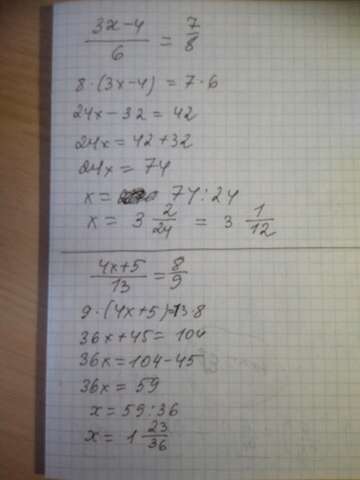 (3x-4)/6 = 7/8
8·(3x-4) = 7·6
24x-32 = 42
24x = 42+32
24x = 74
x = 74:24
x = 3 2/24 = 3 1/12
(4x+5)/13 = 8/9
9·(4x+5)=13·8
36x+45 = 104
36x=104-45
36x = 59
x = 59:36
x = 1 23/36